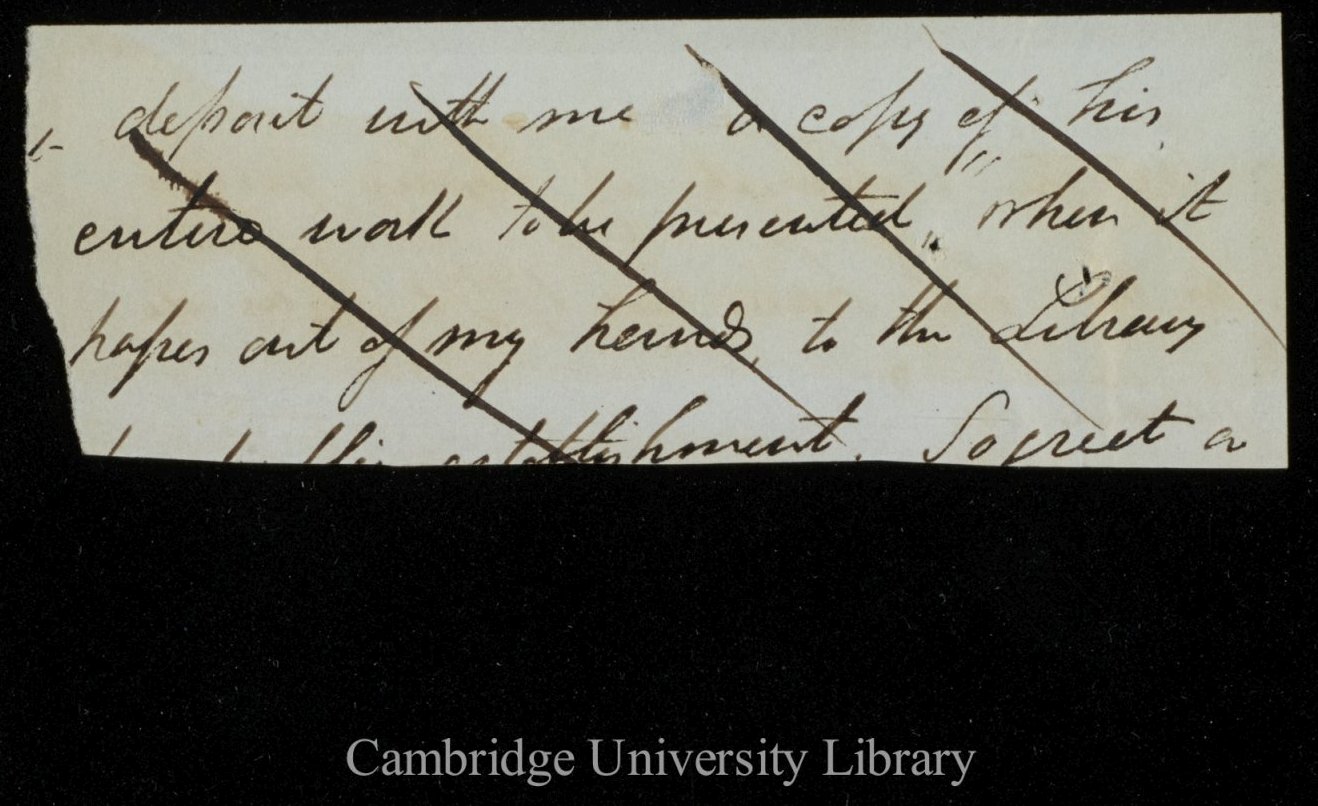 deposit with me a copy of his
entire work to be presented, when it
passes out of my hands, to the Library
establishment. So great a
Cambridge University Library